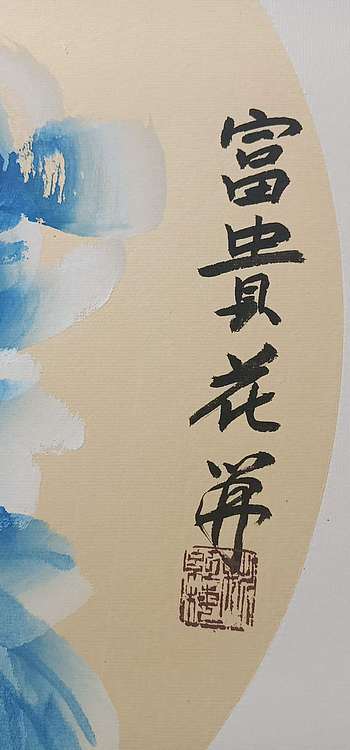 富貴花開